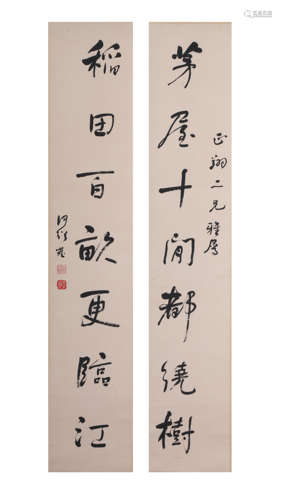 茅屋十間都繞樹
正翔二兄雅屬
稻田百畝更臨江
何紹基